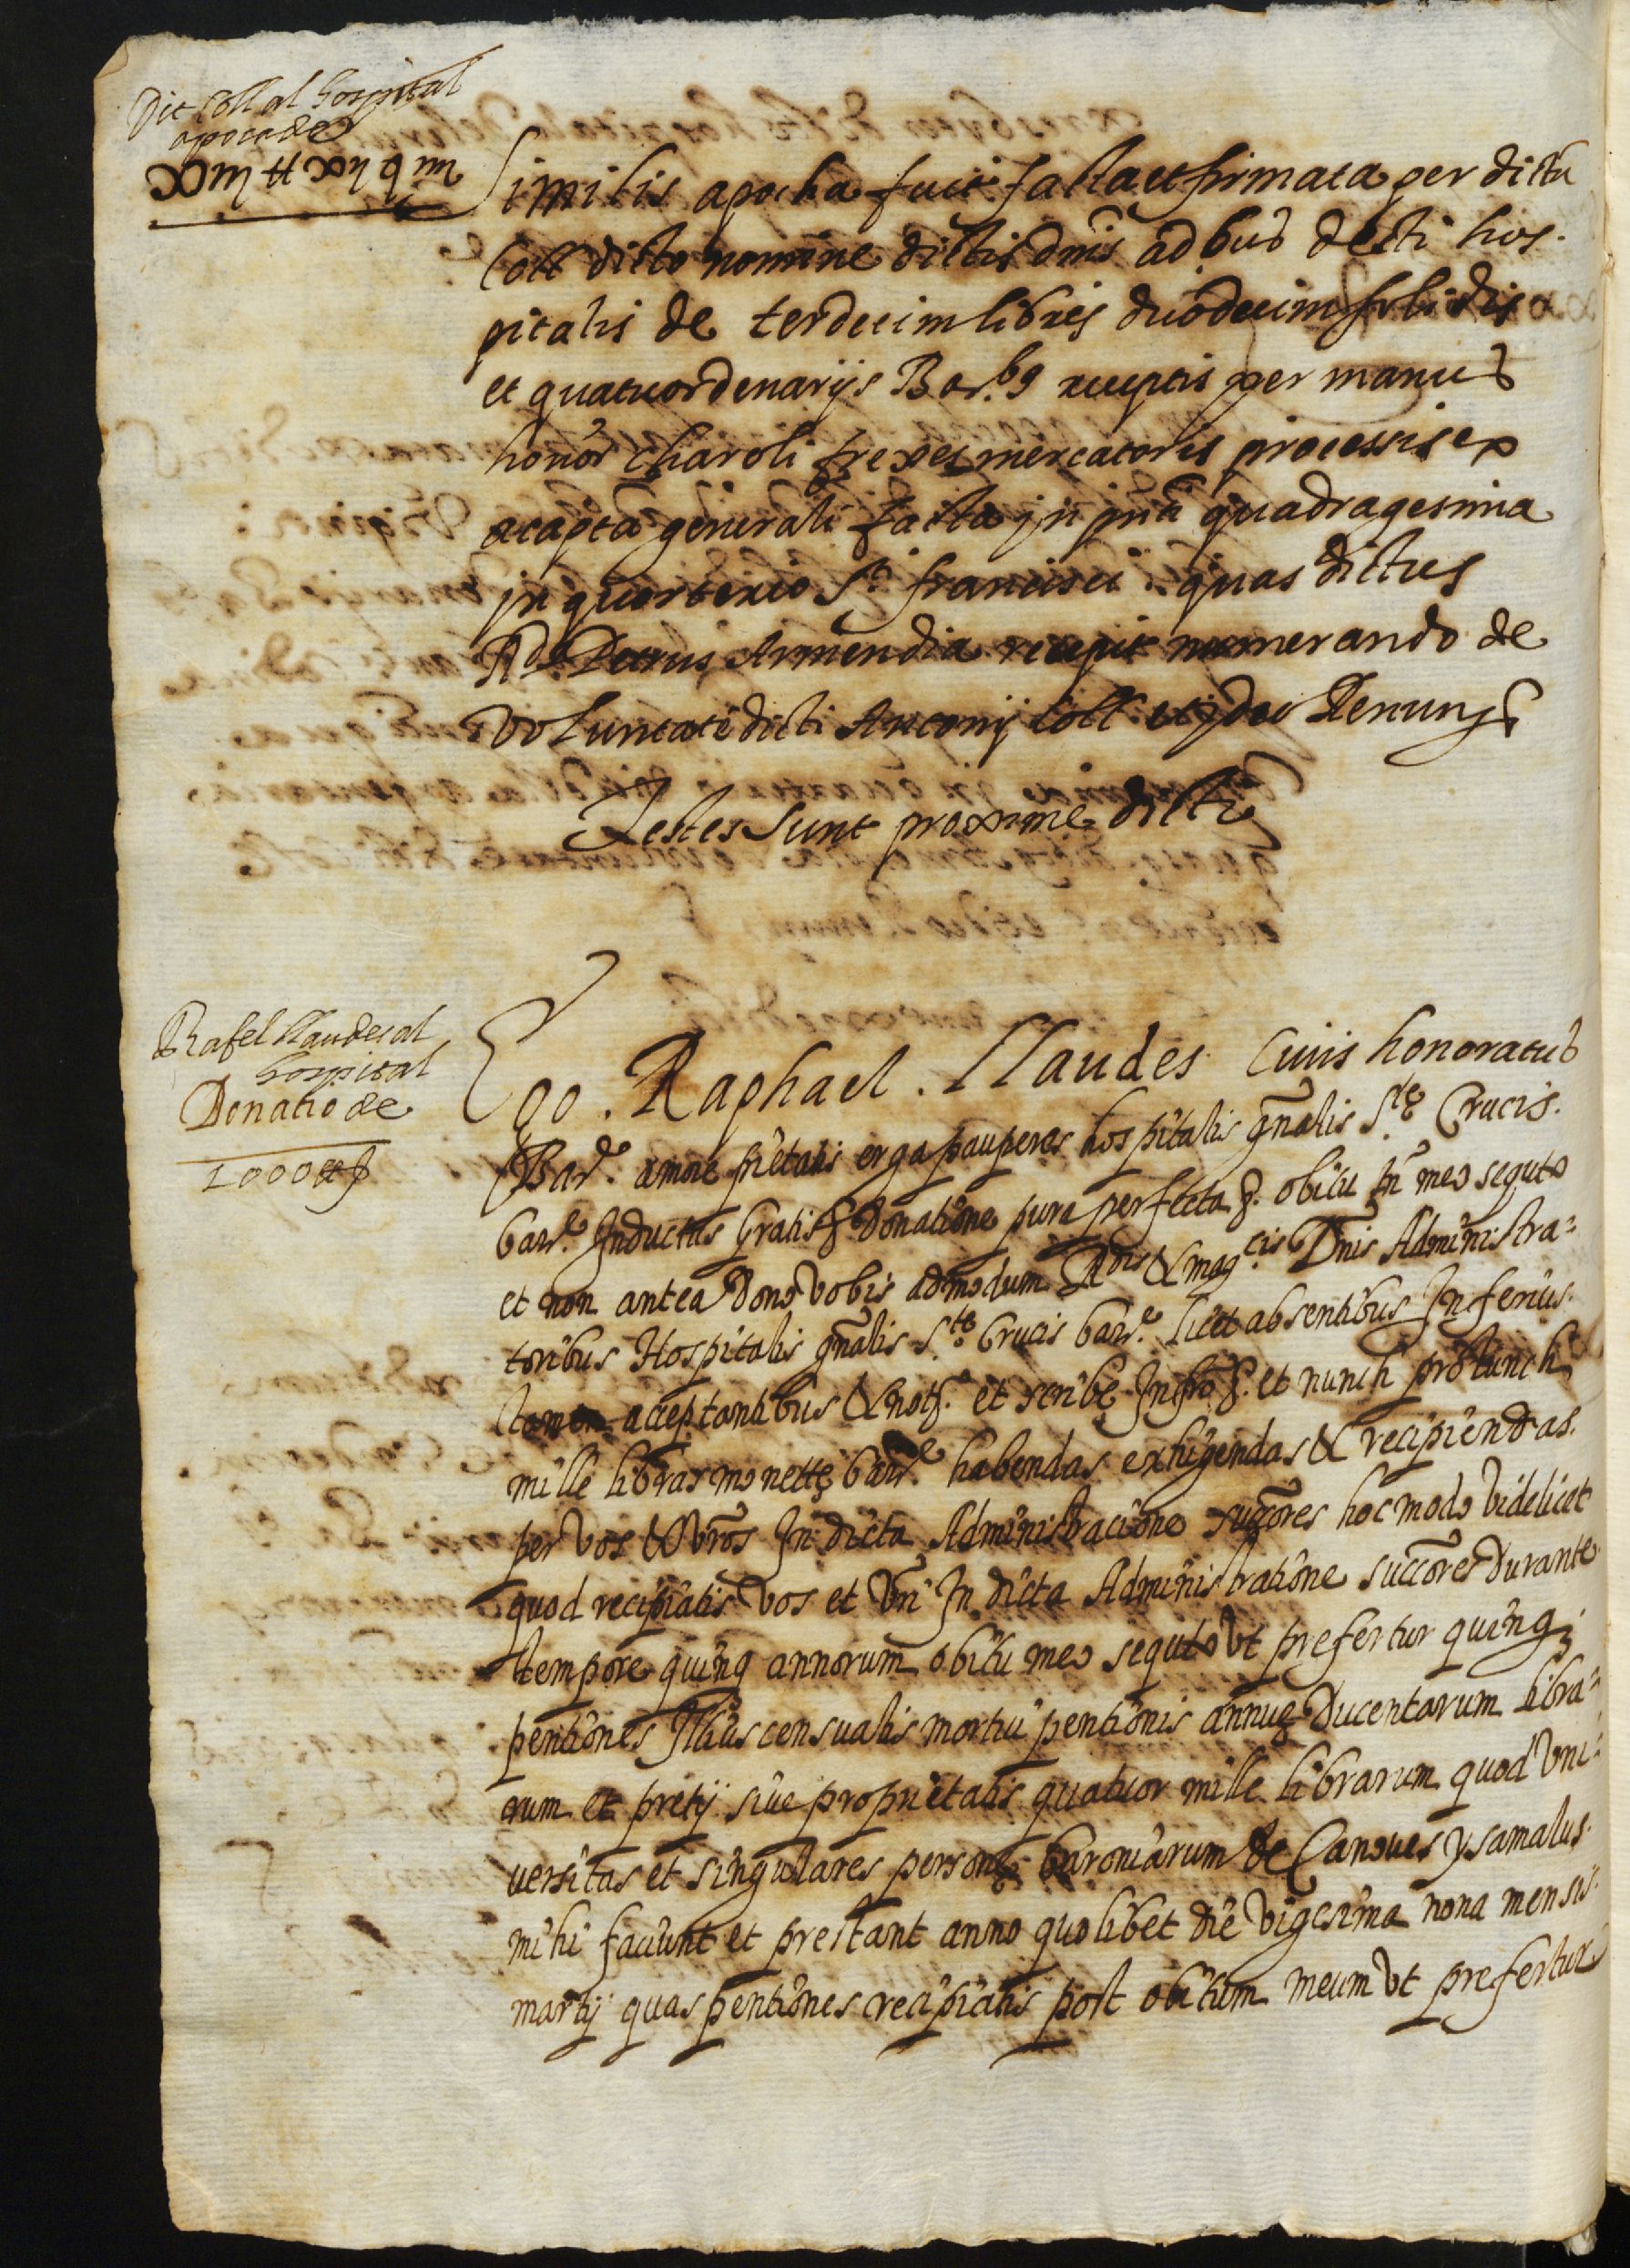 Dit Coll al hospital
apoca de
xiij ₶ xij ș iiij
Similis apocha fuit facta et firmata per dictũ
Coll dicto nomine dictis dnis adbus decti hos-
pitalis de terdecim libres duodecim solidis
et quatuor denarijs Bar.bș receptis per manus
honor Charoli frexes mercatoris processis ex
acapta generali facta jn pnti quadragesima
jn quarterio St francisci quas dictus
Rds Petrus Armendia recepit numerando de
voluntate dicti Antonij Coll et jdeo Renungs
Testes sunt proxime dicti
Rafel Llaudes al
hospital
Donatio de
1000 ₶
Ego . Raphael . Llaudes Civis honoratus
Bare. amore pietatis erga pauperes hospitalis gñalis Ste Crucis.
bare. Inductus Gratis & Donatione pura perfecta &. obitu tñ meo seguto
et non antea Dono vobis admodum Rdis & mag.cis Dnis Administra=
toribus Hospitalis gñalis S.te Crucis bare. licet absentibus Inferius.
tamen acceptantibus & notº. et scribe Infro &. et nunch pro tunch
mille libras monette bare. habendas exhigendas & recipiendas.
per vos & vr̃os In dicta Administracione succ̃ores hoc modo videlicet
quod recipiatis vos et vr̃i In dicta Administratione succ̃ores Durante
tempore quinq annorum obitu meo seguto vt prefertur quinq;
pentiones Illius censualis mortui pentionis annuę Ducentarum libra=
rum et pretij siue proprietatis quatuor mille librarum quod vni=
versitas et singulares personę baroniarum de Canoves y samalus.
mihi faciunt et prestant anno quolibet die vigesima nona mensis.
martij quas pentiones recipiatis post obitum meum vt prefertur